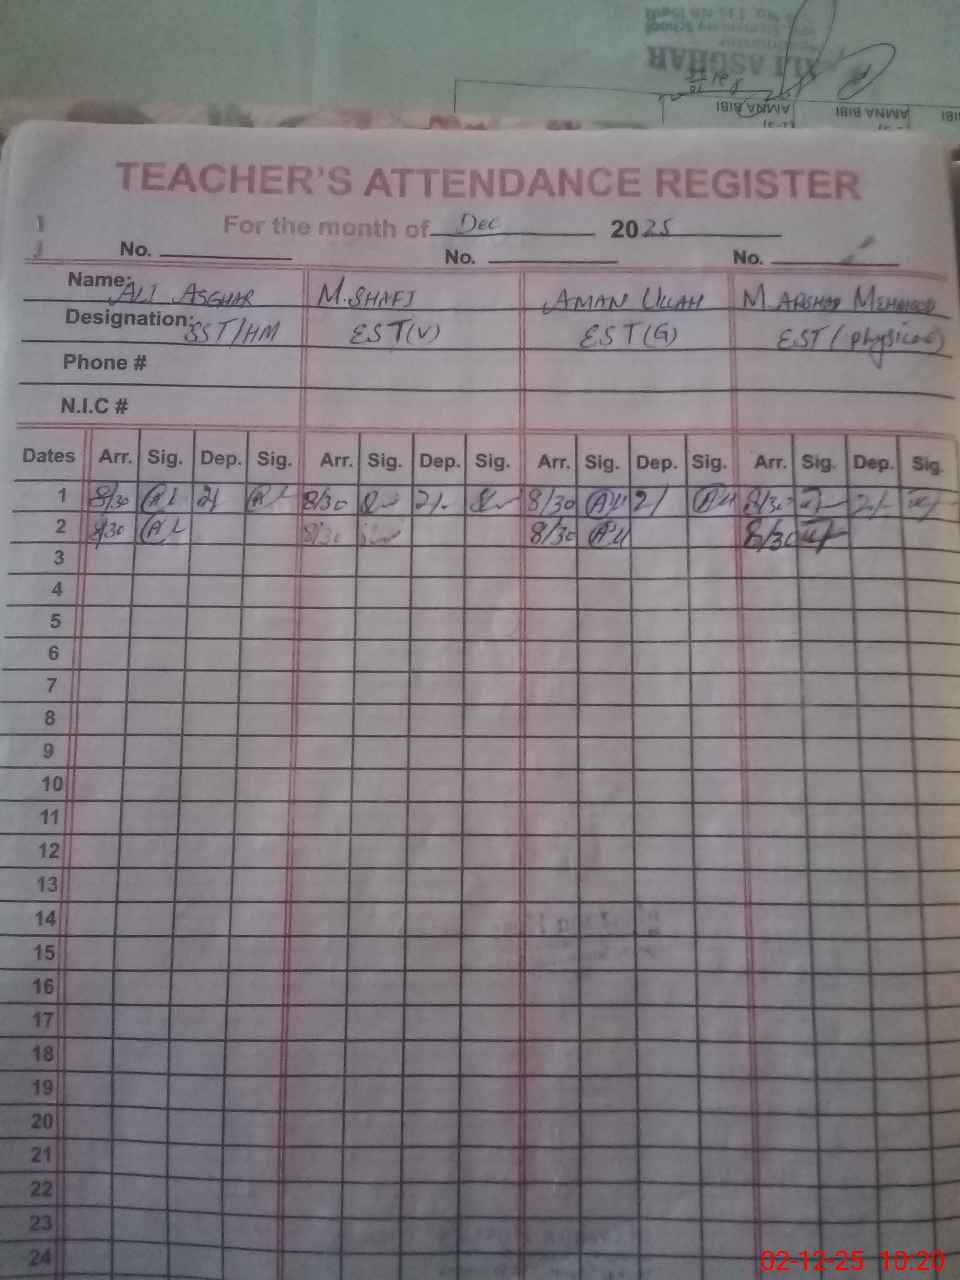 ALI ASGHAR
AMNA BIBI AMNA BIBI BIBI
TEACHER'S ATTENDANCE REGISTER
For the month of Dec 2025
No. No. No.
Name: ALI ASGHAR M.SHAFI AMAN ULLAH M. ARSHAD MEHMOOD
Designation: SST/HM EST(V) EST(G) EST (physical)
Phone #
N.I.C #
Dates Arr. Sig. Dep. Sig. Arr. Sig. Dep. Sig. Arr. Sig. Dep. Sig. Arr. Sig. Dep. Sig.
1 8/30 2/ 8/30 2/- 8/30 2/ 8/30 2/-
2 8/30 8/30 8/30 8/30
3
4
5
6
7
8
9
10
11
12
13
14
15
16
17
18
19
20
21
22
23
24
02-12-25 10:20